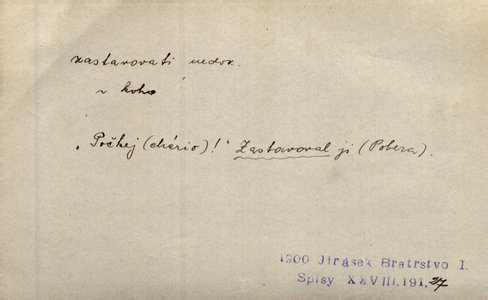 zastavovati nedok.
~ koho
„Počkej (chário)!" Zastavoval ji (Pobera).
1900 Jirásek Bratrstvo I.
Spisy XXVIII.191,37